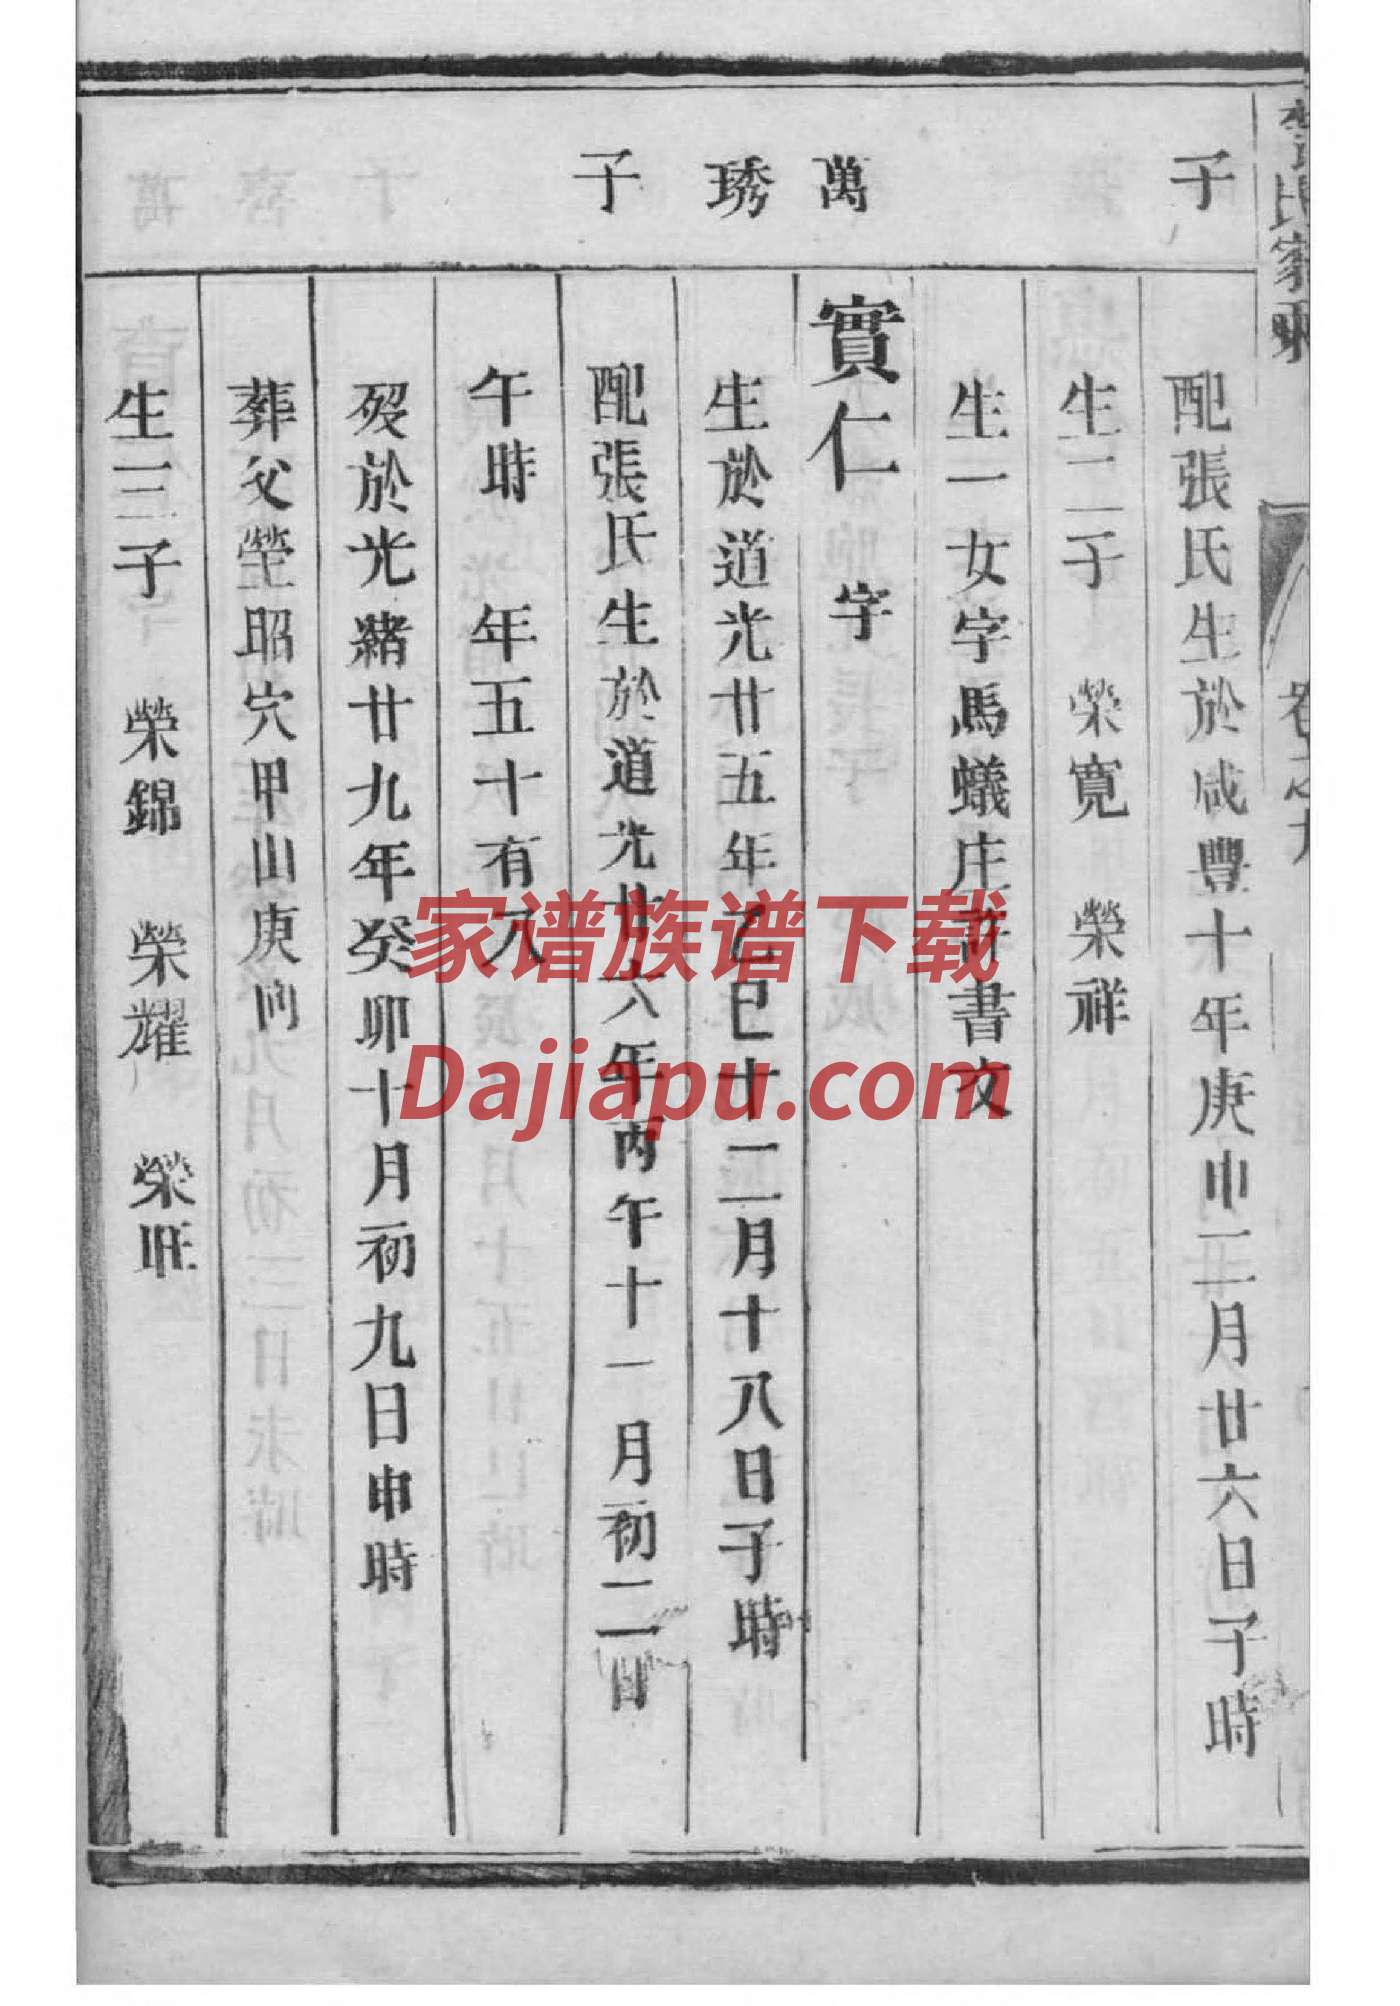 氏家乘
卷之九
子
配張氏生於咸豐十年庚申二月廿六日子時
生二子 榮寬 榮祥
生一女字馬蟻庄許書文
萬
琇
子
實仁 字
生於道光廿五年乙巳十二月十八日子時
配張氏生於道光廿六年丙午十一月初二日
午時 年五十有八
歿於光緒廿九年癸卯十月初九日申時
葬父塋昭穴甲山庚向
生三子 榮錦 榮耀 榮旺
家谱族谱下载
Dajiapu.com